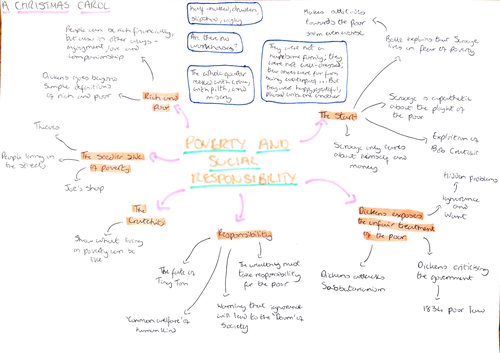 A CHRISTMAS CAROL
People can be rich financially,
but poor in other ways -
enjoyment, love and
companionship
Dickens goes beyond
simple definitions
of rich and poor
Rich and
poor
half-naked, drunken,
slipshod, ugly
Are there no
workhouses?
The whole quarter
reeked with crime,
with filth, and
misery
They were not a
handsome family; they
were not well-dressed;
their shoes were far from
being waterproof... But
they were happy, grateful,
pleased with one another
Makes attitudes
towards the poor
seem even worse
Belle explains that Scrooge
lives in fear of poverty
The Start
Scrooge is apathetic
about the plight of
the poor
Exploitation of
Bob Cratchit
Scrooge only cares
about himself and
money
POVERTY AND
SOCIAL
RESPONSIBILITY
Thieves
People living in
the streets
The seedier side
of poverty
Joe's shop
The
Cratchits
Show what living
in poverty can be
like
Responsibility
The fate of
Tiny Tim
'Common welfare' of
human kind
Warning that ignorance
will lead to the "Doom" of
Society
The wealthy must
take responsibility
for the poor
Dickens exposes
the unfair treatment
of the poor
Hidden problems
Ignorance
and
Want
Dickens attacks
Sabbatarianism
Dickens criticising
the government
1834 poor law